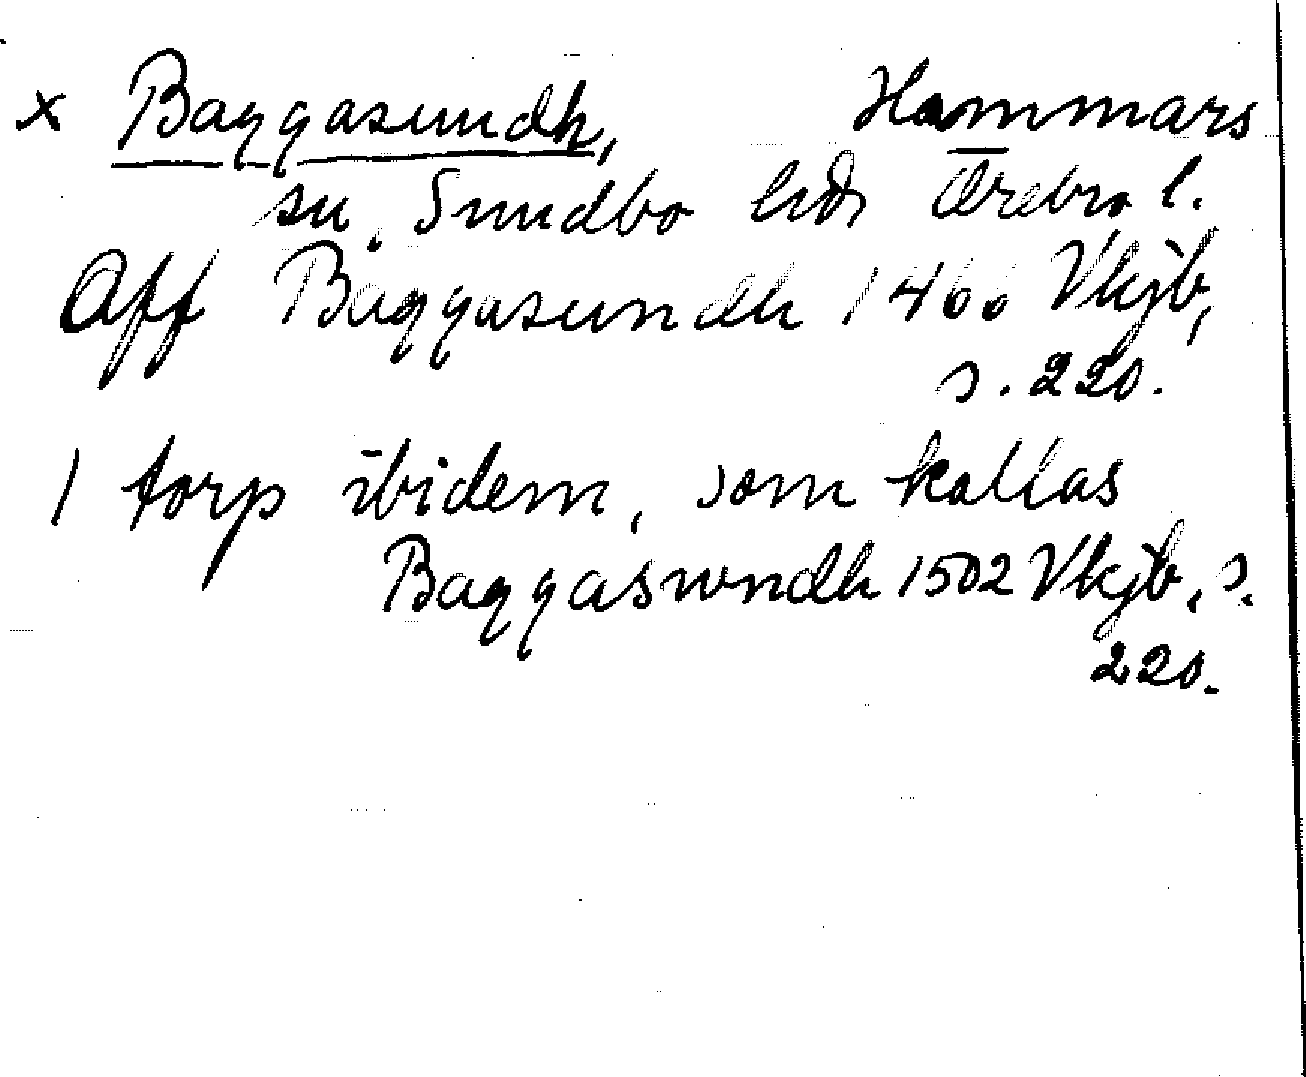 x Baggasundh, Hammars
sn. Sundbo hd, Örebro l.
Aff Baggasundh 1466 Vkjb,
s. 220.
1 torp ibidem, som kallas
Baggaswndh 1502 Vkjb, s.
220.